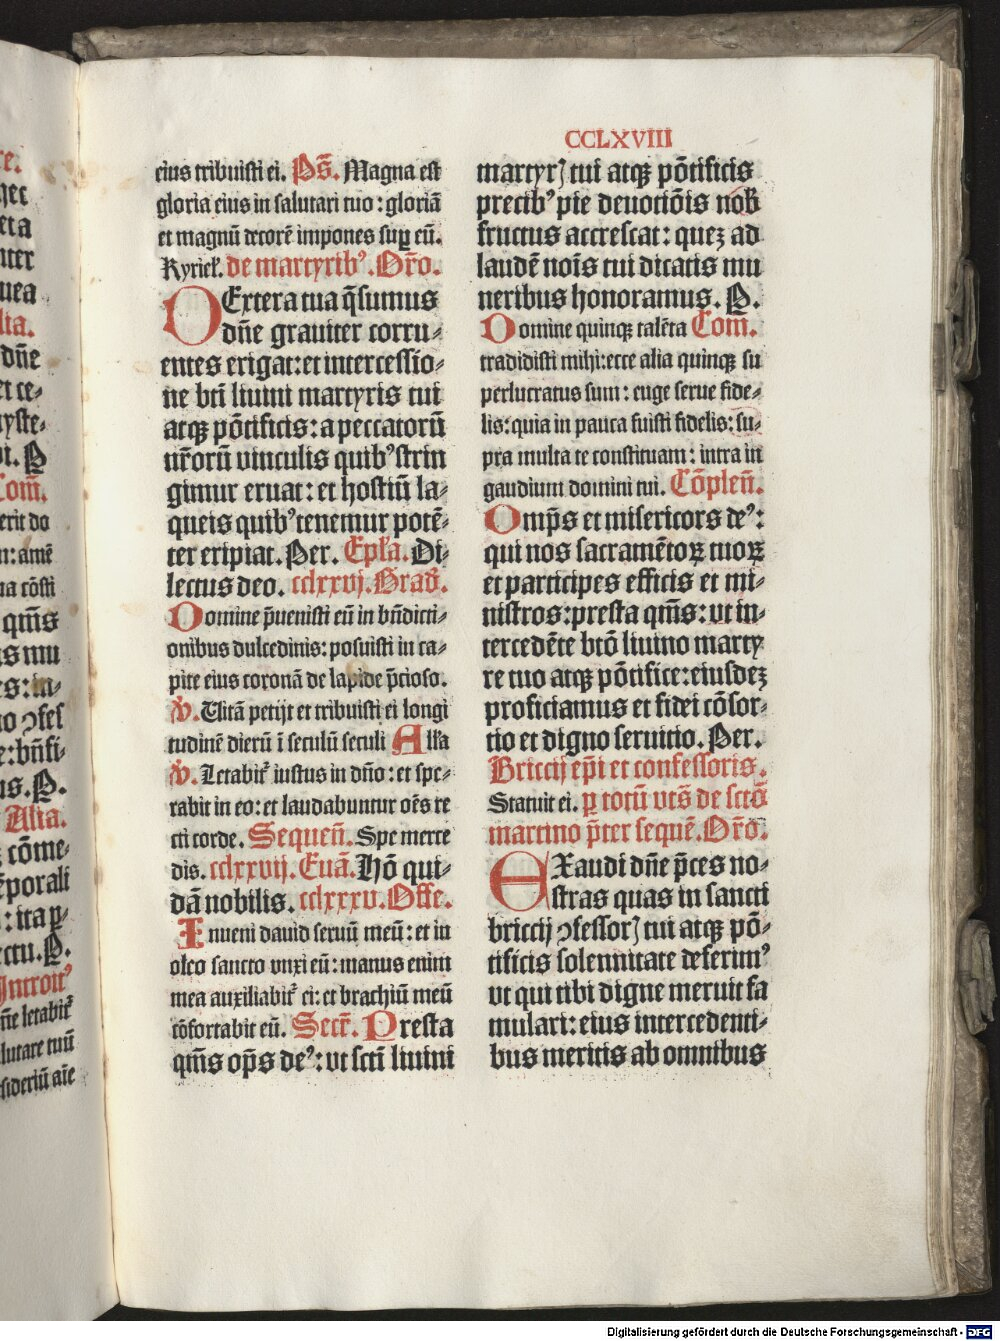 CCLXVIII
eius tribuisti ei. Ps̄. Magna est
gloria eius in salutari tuo : gloriā
et magnū decorē impones suꝑ eū.
Kyriel̄. de martyrib⁹. Or̄o.
DExtera tua q̄sumus
dn̄e grauiter corru⸗
entes erigat: et intercessio⸗
ne bt̄i liuini martyris tui
atqꝫ pōtificis: a peccatorū
nr̄orū vinculis quib⁹ strin
gimur eruat: et hostiū la⸗
queis quib⁹ tenemur potē⸗
ter eripiat. Per. Epl̄a. Di⸗
lectus deo. cclxxvj. Grad̄.
Domine p̄uenisti eū in bn̄dicti⸗
onibus dulcedinis: posuisti in ca⸗
pite eius coronā de lapide p̄cioso.
V̄. Uitā petijt et tribuisti ei longi
tudinē dierū ī seculū seculi All̄a
V̄. Letabit᷑ iustus in dn̄o : et spe⸗
rabit in eo: et laudabuntur oēs re
cti corde. Sequen̄. Spe merce
dis. cclxxvij. Euā. Hō qui⸗
dā nobilis. cclxxxv. Offe.
Inueni dauid seruū meū : et in
oleo sancto vnxi eū : manus enim
mea auxiliabit᷑ ei: et brachiū meū
cōfortabit eū. Secr̄. Presta
qm̄s op̄s de⁹: vt sctī liuini
martyrꝭ tui atqꝫ pōtificis
precib⁹ pie deuotiōis nob̄
fructus accrescat: queꝫ ad
laudē noīs tui dicatis mu
neribus honoramus. P.
Domine quinqꝫ talēta Com̄.
tradidisti mihi: ecce alia quinqꝫ su
perlucratus sum : euge serue fide⸗
lis: quia in pauca fuisti fidelis: su⸗
pra multa te constituam : intra in
gaudium domini tui. Cōplen̄.
Omp̄s et misericors de⁹:
qui nos sacramētoꝝ tuoꝝ
et participes efficis et mi⸗
nistros: presta qm̄s: vt in⸗
tercedēte btō liuino marty
re tuo atqꝫ pōtifice: eiusdeꝫ
proficiamus et fidei cōsor⸗
tio et digno seruitio. Per.
Briccij ep̄i et confessoris.
Statuit ei. ꝑ totū vts̄ de sctō
martino p̄ter sequē. Or̄o.
EXaudi dn̄e p̄ces no⸗
stras quas in sancti
briccij ꝯfessorꝭ tui atqꝫ pō⸗
tificis solennitate deferim⁹
vt qui tibi digne meruit fa
mulari: eius intercedenti⸗
bus meritis ab omnibus
Digitalisierung gefördert durch die Deutsche Forschungsgemeinschaft - DFG